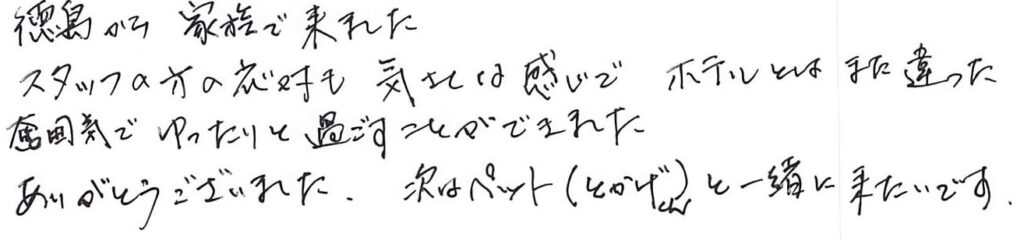 徳島から 家族で来ました
スタッフの方の応対も 気さくな感じで ホテルとはまた違った
雰囲気で ゆったりと過ごすことができました
ありがとうございました. 次はペット(とかげくん)と一緒に来たいです.